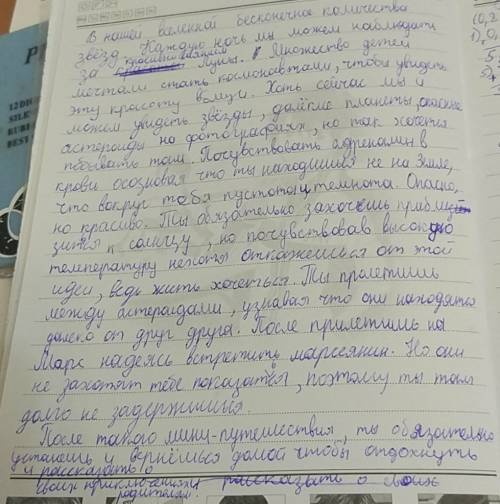 В нашей вселенной бесконечное количество
звёзд. Каждую ночь мы можем наблюдать
за красивым сиянием Луны. Множество детей
мечтали стать космонавтами, чтобы увидеть
эту красоту вблизи. Хоть сейчас мы и
можем увидеть звёзды, далёкие планеты, опасные
астероиды на фотографиях, но так хочется
побывать там. Почувствовать адреналин в
крови осозновая что ты находишься не на Земле,
что вокруг тебя пустота и темнота. Опасно,
но красиво. Ты обязательно захочешь прибли
зится к солнцу, но почувствовав высокую
температуру откажешься от этой
идеи, ведь жить хочеться. Ты пролетишь
между астероидами, узнавая что они находятся
далеко от друг друга. После прилетишь на
Марс надеясь встретить марсеянин. Но они
не захотят тебе показатся, поэтому ты там
долго не задержишся.
После такого мини-путешествия, ты обязательно
устанешь и вернёшься домой чтобы отдохнуть
и рассказать о
своих приключениях рассказать о своих
родителям.
12 DI
SIL
RUB
BEST